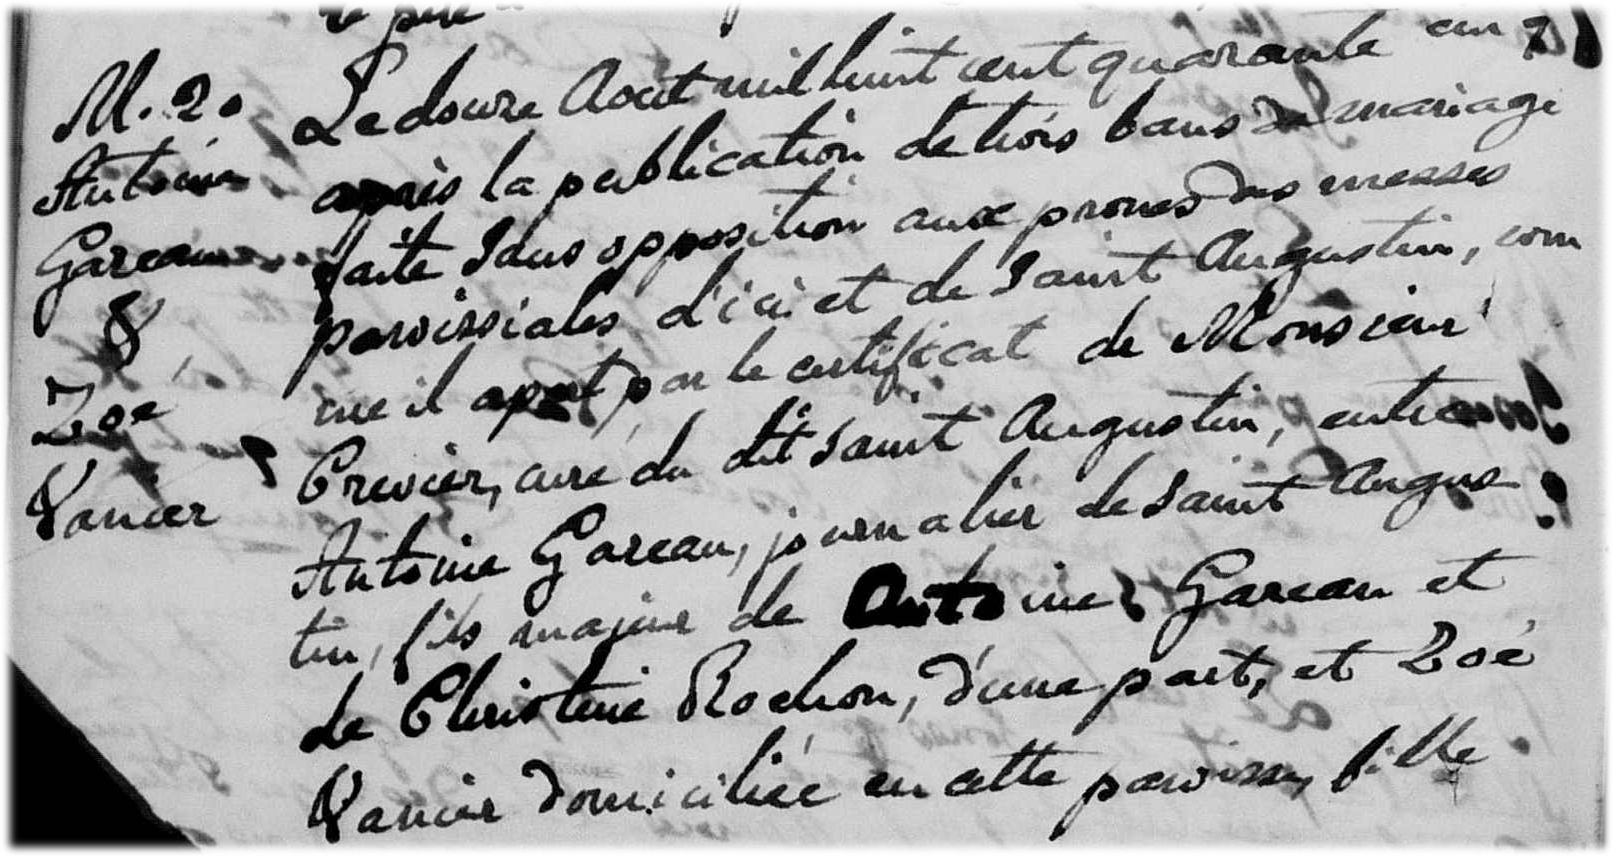 M. 20
Antoine
Gareau
&
Zoé
Vanier
Le douze Aout mil huit cent quarante un
après la publication de trois bans de mariage
faite sans opposition aux prones des messes
paroissiales d'ici et de Saint Augustin, com
me il apert par le certificat de Monsieur
Crevier, curé du dit Saint Augustin, entre
Antoine Gareau, journalier de Saint Augus
tin, fils majeur de Antoine Gareau et
de Christine Rochon, d'une part, et Zoé
Vanier domiciliée en cette paroisse, fille